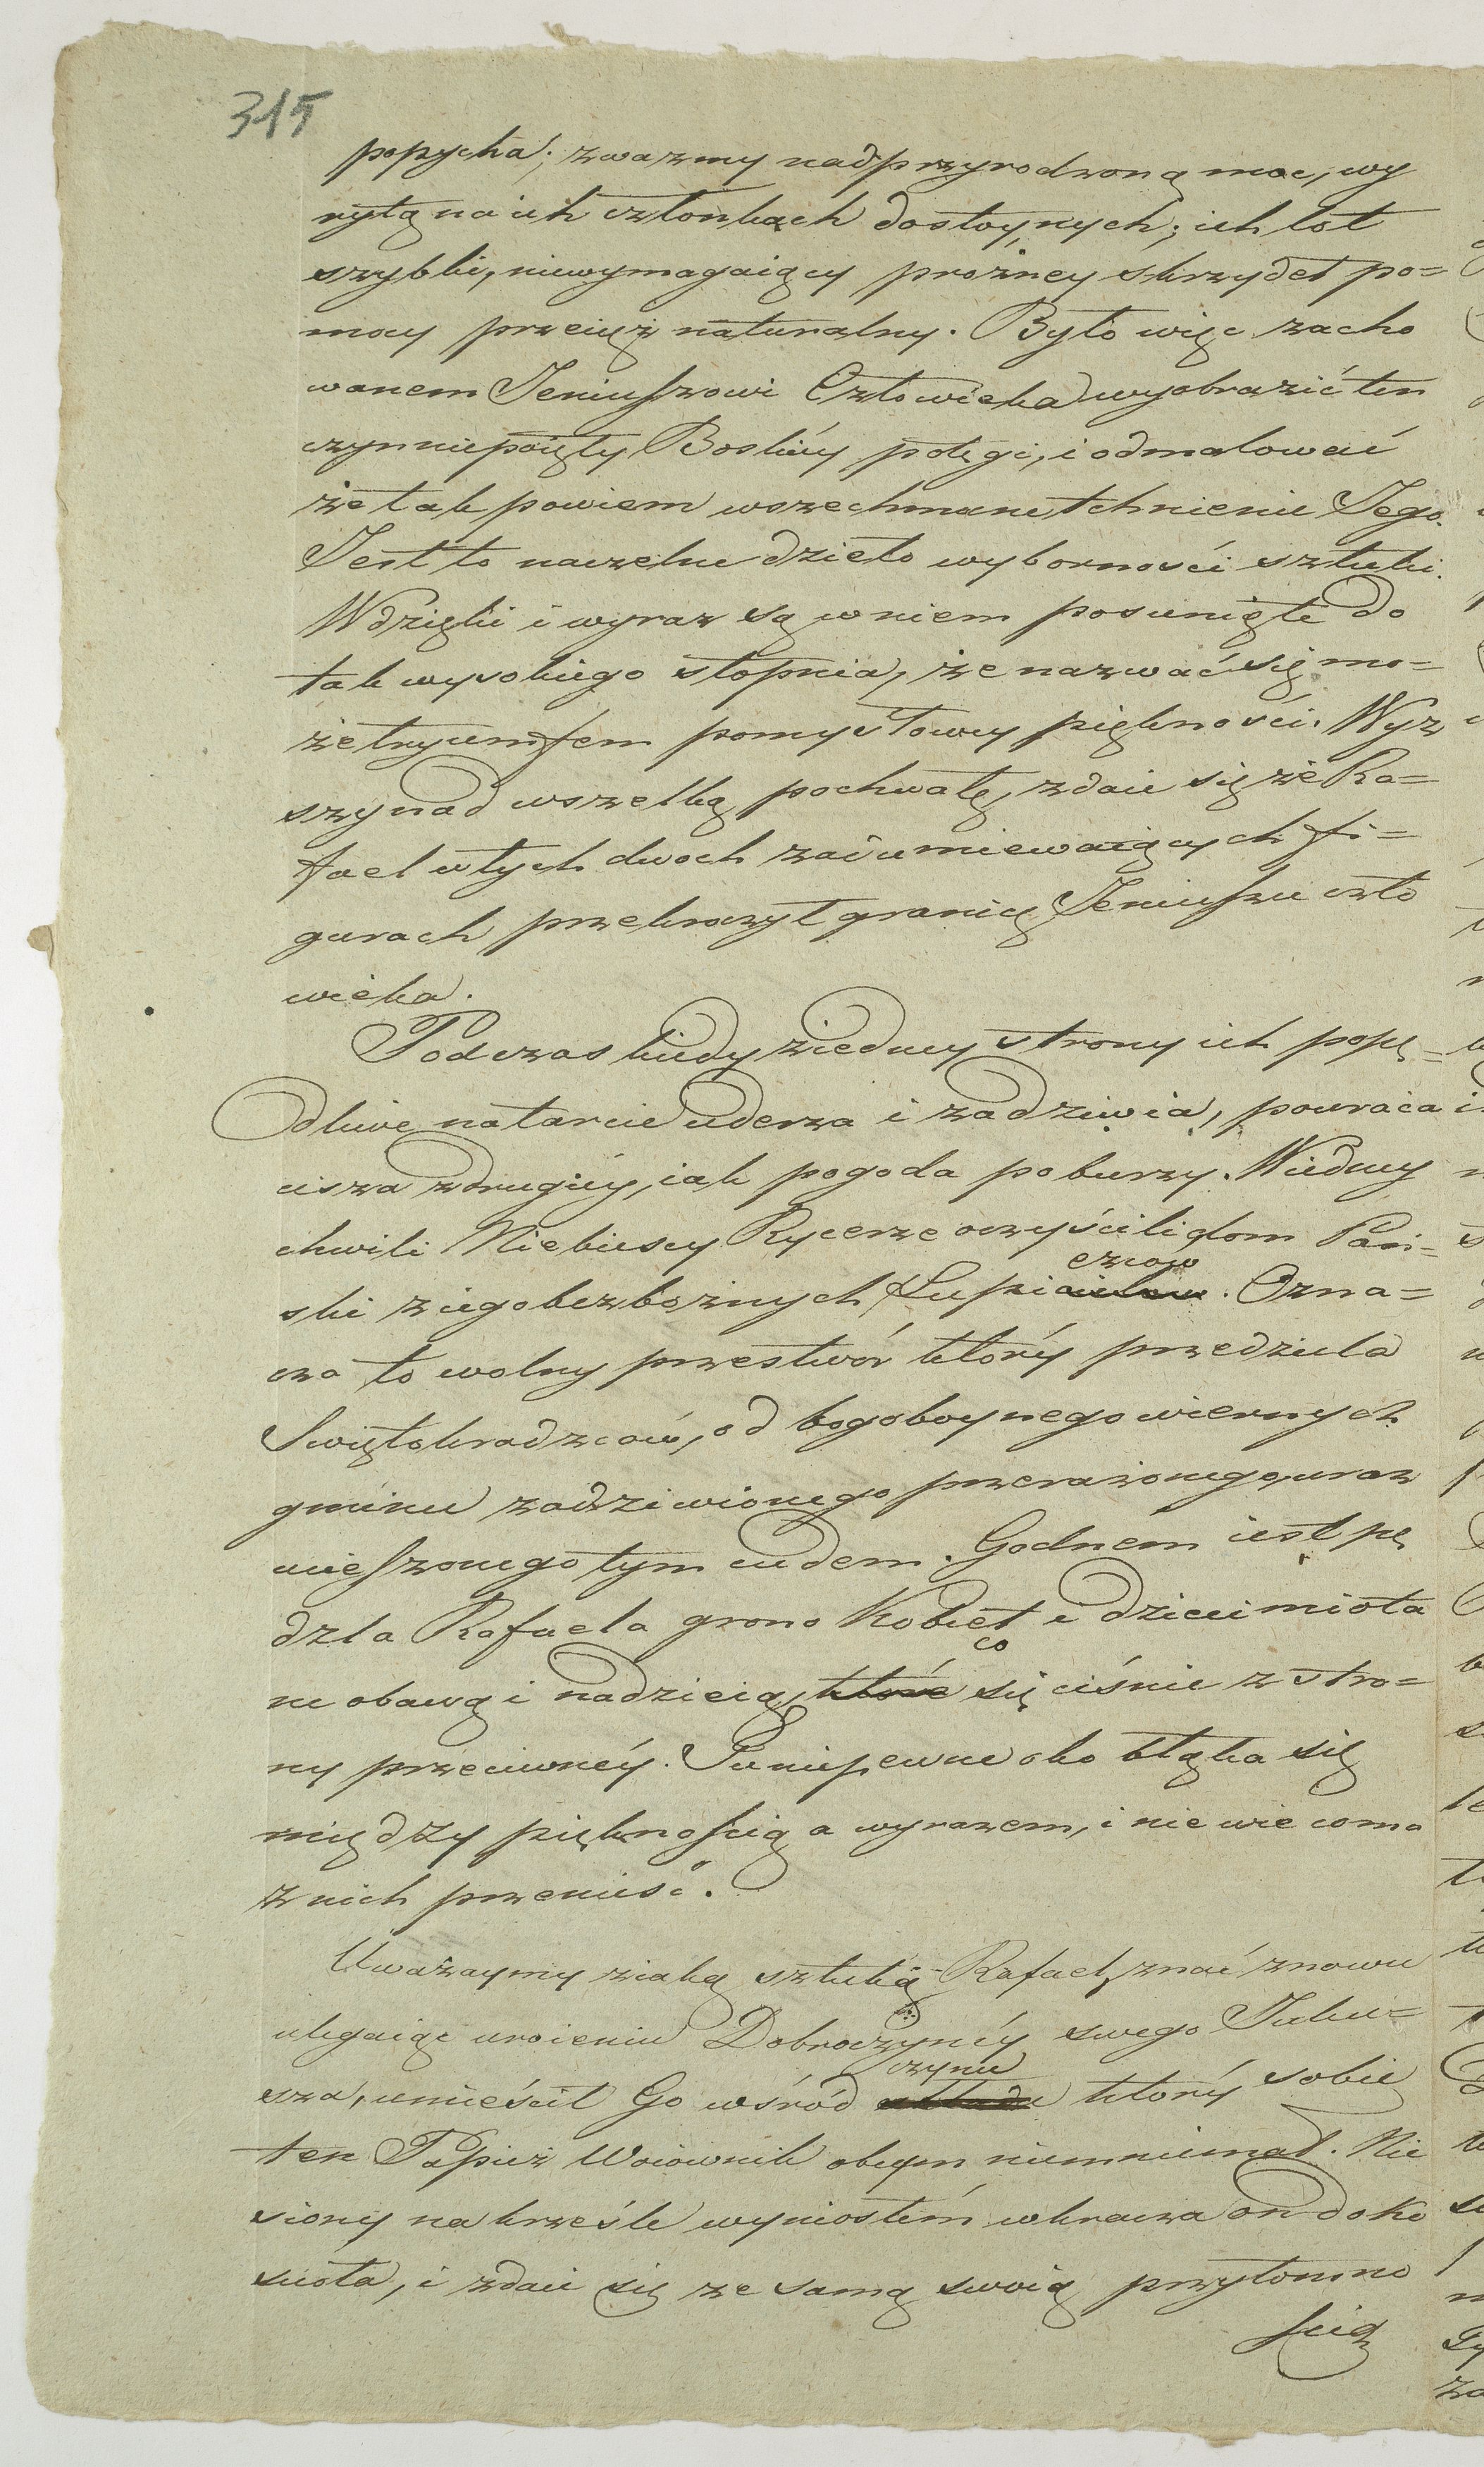 315
popycha; zważmy nadprzyrodzoną moc, wy
rytą na ich członkach dostoynych; ich lot
szybki, niewymagaiący prożney skrzydeł po=
mocy przeciąż naturalny. Było więc zacho
wanem Jeniuszowi Człowieka wyobrazić ten
czyn niepoięty Boskiéy potęgi, i odmalować
że tak powiem wszechmocne tchnienie Jego.
Jest to naczelne dzieło wyborności sztuki.
Wdzięki i wyraz są w niem posunięte do
tak wysokiego stopnia, że nazwać się mo=
że tryumfem pomysłowey piękności. Wyż
szy nad wszelką pochwałę, zdaie się że Ra=
fael w tych dwoch zadumiewaiących fi=
gurach przekroczył granicę Jeniuszu czło
wieka.
Podczas kiedy ziedney strony ich popę=
dliwe natarcie uderza i zadziwia, powraca
cisza zdrugiéy, iak pogoda po burzy. Wiedney
chwili Niebiescy Rycerze oczyścili dom Pań=
ski ziego bezbożnych Łupi ezców. Ozna=
cza to wolny przestwór który przedziela
Swiętokradzców, od bogoboynego wiernych
gminu zadziwionego przerażonego, uraz
uieszonego tym cudem. Godnem iest pę
dzla Rafaela grono Kobiet i dzieci miota
ne obawą i nadzieią, które co się ciśnie z stro=
ny przeciwnéy. Tu niepewne oko błąka się
między pięknością a wyrazem, i nie wie co ma
z nich przenieść.
Uważaymy ziaką sztuką Rafael, znać znowu
ulegaiąc uroieniu Dobroczyńcy swego Juliu=
sza, umieścił Go wśród układu czynu który sobie
ten Papież Woiownik obcym niemniemał. Nie
siony na krześle wyniosłém wkracza on do Ko
scioła, i zdaie się ze samą swoią przytomno
ścią